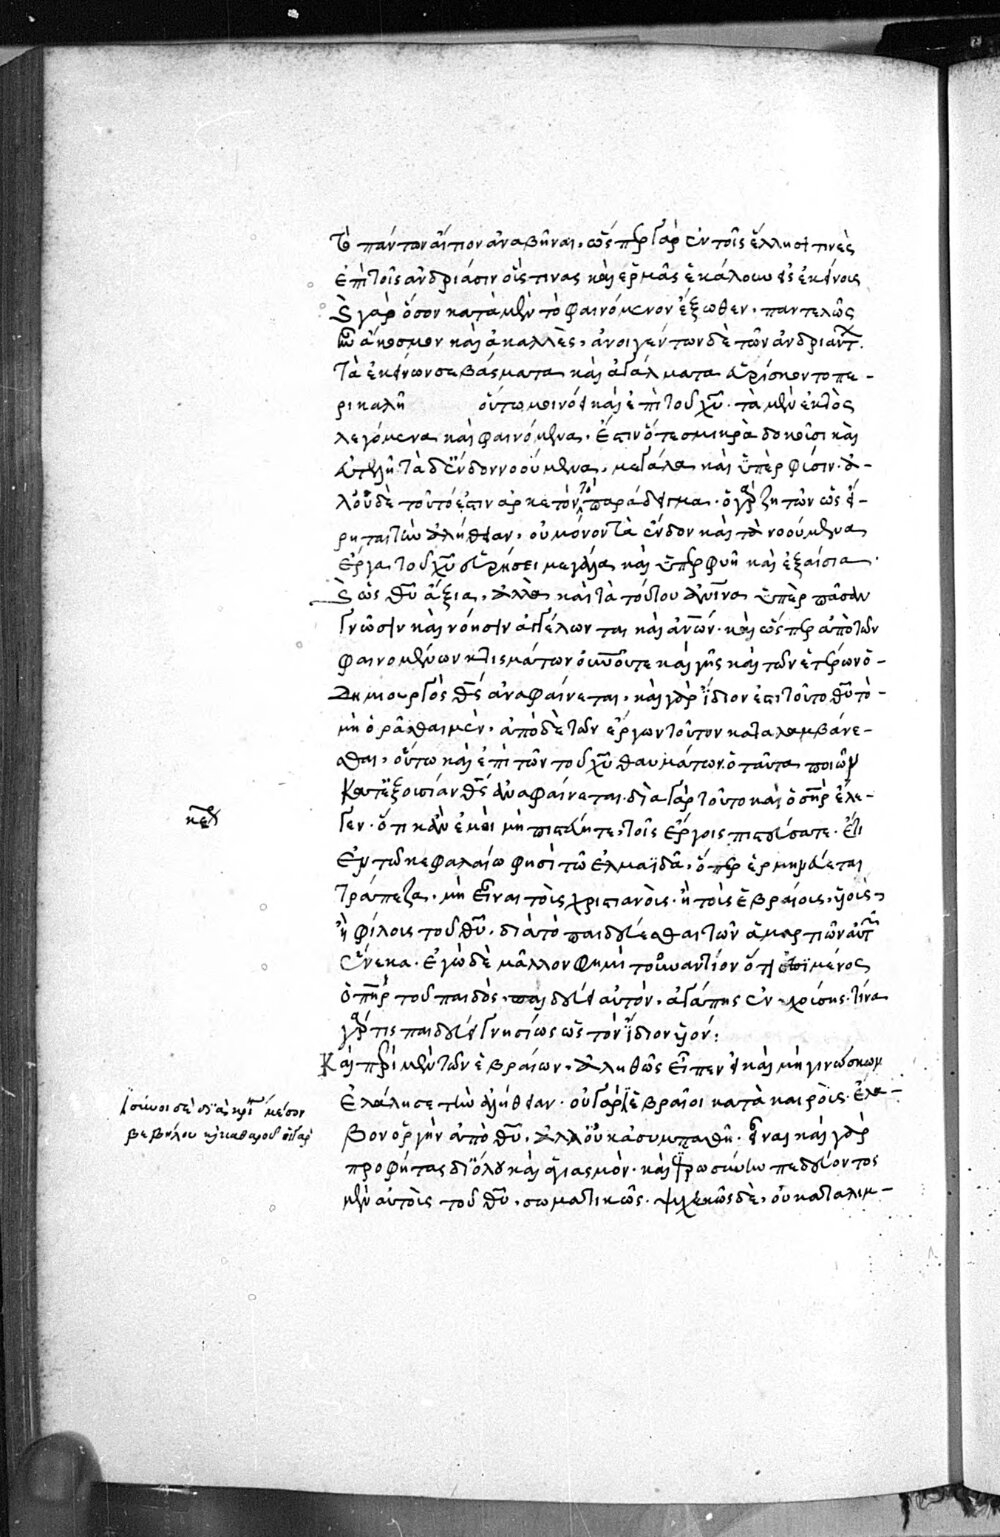 τὸ πάντων αἴτιον ἀναβῆναι, ὥσπερ γὰρ ἐν τοῖς ἕλλησι τινὲς
ἐπὶ τοῖς ἀνδριάσιν οὕς τινας καὶ ἑρμᾶς ἐκάλουν ἐκείνοις
γὰρ ὅσον κατὰ μὲν τὸ φαινόμενον ἔξωθεν, παντελῶς
ἄκοσμον καὶ ἀκαλλὲς, ἀνοιγέντων δὲ τῶν ἀνδριάντ.
τὰ ἐκείνων σεβάσματα καὶ ἀγάλματα εὑρίσκοντο πε-
ρικαλῆ οὕτω μοι νόει καὶ ἐπὶ τοῦ χυ̅. τὰ μὲν ἐκτὸς
λεγόμενα καὶ φαινόμενα, ἔστιν ὅτε σμικρὰ δοκοῦσι καὶ
εὐτελῆ τὰ δ' ἔνδον νοούμενα, μεγάλα καὶ ὑπὲρ φύσιν.
δὲ τοῦτό ἐστιν ἀρκετὸν τὸ παράδειγμα. ὁ γὰρ ζητῶν ὡς εἴ-
ρηται τὴν ἀλήθειαν, οὐ μόνον τὰ ἔνδον καὶ τὰ νοούμενα
ἔργα τοῦ χυ̅ εὑρήσει μεγάλα καὶ ὑπερφυῆ καὶ ἐξαίσια.
ὡς θυ̅ ἄξια, ἀλλὰ καὶ τὰ τούτου ὑπὲρ πᾶσαν
γνῶσιν καὶ νόησιν ἀγγέλων τε καὶ ἀνων̅. καὶ ὥσπερ ἀπὸ τῶν
φαινομένων κτισμάτων οὐνου̅ τε καὶ γῆς καὶ τῶν ἑτέρων ὁ
δημιουργὸς θς̅ ἀναφαίνεται, καὶ γὰρ ἴδιον ἐστι τοῦτο θυ̅ τὸ
μὴ ὁρᾶσθαι μὲν, ἀπὸ δὲ τῶν ἔργων τοῦτον καταλαμβάνε-
σθαι, οὕτω καὶ ἐπὶ τῶν τοῦ χυ̅ θαυμάτων. ὁ ταῦτα ποιῶν
κατ' ἐξουσίαν θς̅ ἀναφαίνεται. διὰ γὰρ τοῦτο καὶ ὁ σηρ̅ ἔλε-
γεν. ὅτι κἂν ἐμοὶ μὴ πιστεύητε, τοῖς ἔργοις πιστεύσατε. ἔτι
ἐν τῶ κεφαλαίω φησὶ τῶ ἐλμαϊδᾶ, ὅπερ ἑρμηνεύεται
τράπεζα, μὴ εἶναι τοῖς χριστιανοῖς. ἢ τοῖς ἑβραίοις, υἱοῖς,
ἢ φίλοις τοῦ θυ̅, διὰ τὸ παιδεύεσθαι τῶν ἁμαρτιῶν αὐτ
ἕνεκα. ἐγὼ δὲ μᾶλλον φημὶ τοὐναντίον ὅτι
ὁ πηρ̅ τοῦ παιδὸς, παιδεύει αὐτόν, ἀγάπης ἐν χρίσης. τίνα
γάρ τις παιδεύει γνησίως ὡς τὸν ἴδιον υἱόν:
Καὶ περὶ μὲν τῶν ἑβραίων, ἀληθῶς εἶπεν εἰ καὶ μὴ γινώσκων
ἐλάλησε τὴν ἀλήθειαν. οὐ γὰρ ἑβραῖοι κατὰ καιροὺς. ἔλα-
βον ὀργὴν ἀπὸ θυ̅, ἀλλ' οὐκ ἀσυμπαθῆ. εἶναι καὶ γὰρ
προφήτας δι' ὅλου καὶ ἁγιασμὸν. καὶ
μὲν αὐτοῖς τοῦ θυ̅, σωματικῶς. ψυχικῶς δὲ, οὐ καταλιμ-
μέσον
βεβήλου καὶ καθαροῦ